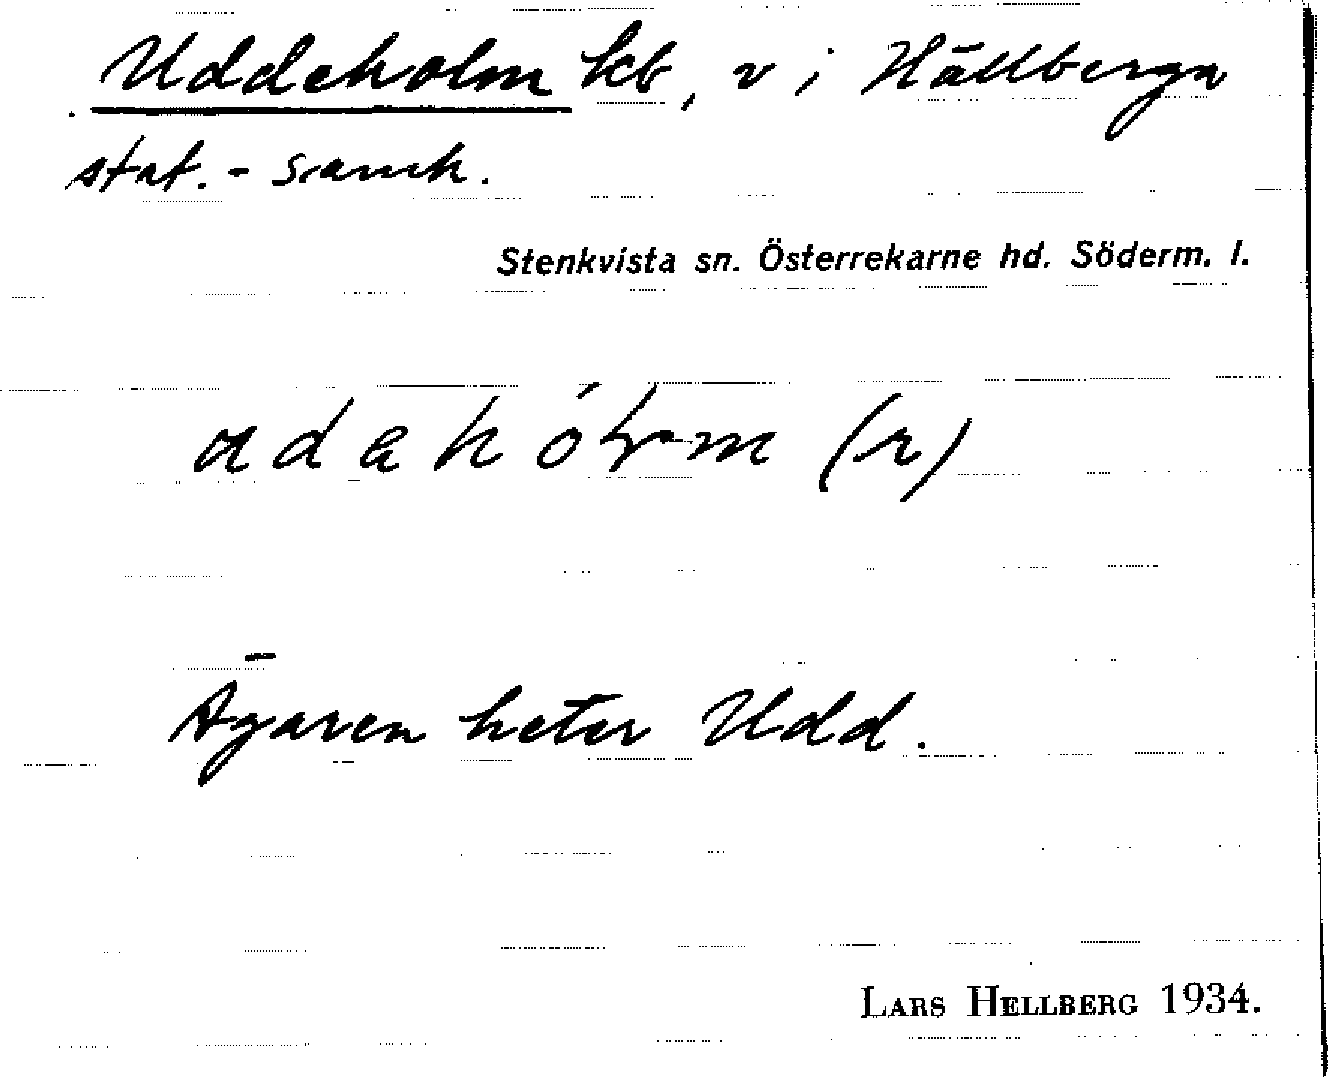 Uddeholm kb, v i Hällberga
stat.-samh.
Stenkvista sn. Österrekarne hd. Söderm. l.
(r)
Ägaren heter Udd.
LARS HELLBERG 1934.